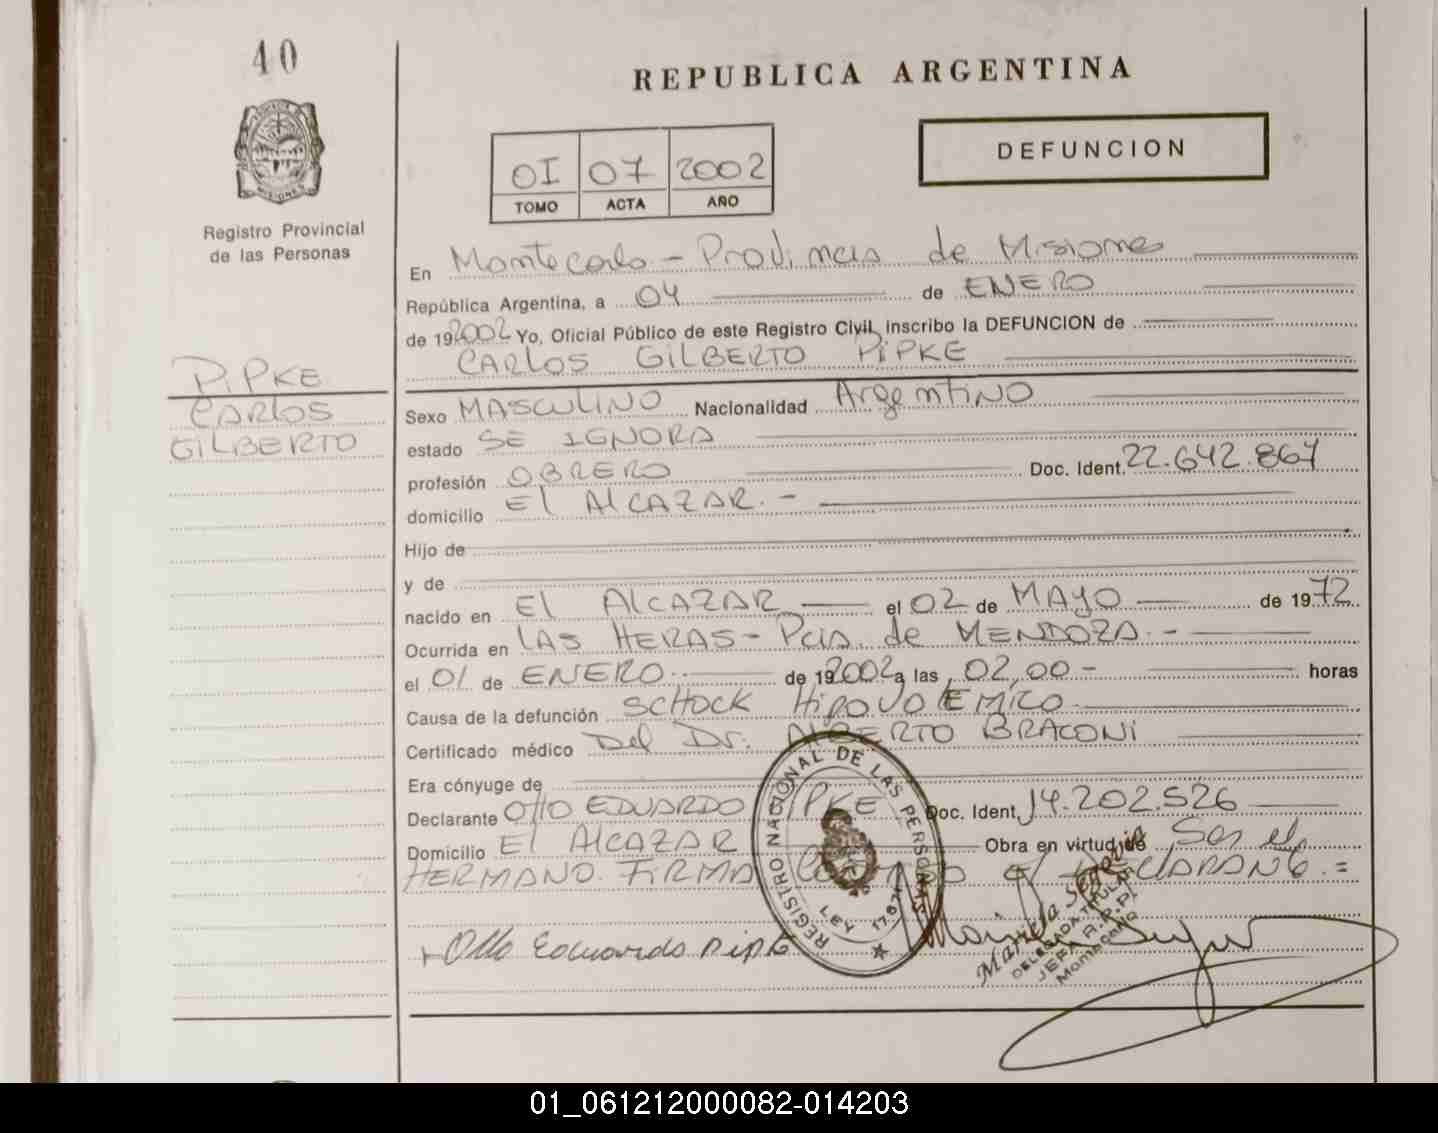 40
REPUBLICA ARGENTINA
DEFUNCION
OI 07 2002
TOMO ACTA AÑO
Registro Provincial
de las Personas
En Montecarlo - Provincia de Misiones
República Argentina, a 04 de ENERO
de 192002 Yo, Oficial Público de este Registro Civil, inscribo la DEFUNCION de
CARLOS GILBERTO PIPKE
PIPKE
CARLOS
GILBERTO
Sexo MASCULINO Nacionalidad ArgentINO
estado SE IGNORA
profesión OBRERO Doc. Ident. 22.642.867
domicilio El AlCAZAR. -
Hijo de
y de
nacido en El AlCAZAR el 02 de MAYO de 1972
Ocurrida en LAS HERAS - Pcia. de MENDOZA. -
el 01 de ENERO de 192002 a las 02,00 - horas
Causa de la defunción SCHOCK HIPOVOLEMICO
Certificado médico Del Dr. ALBERTO BRACONI
Era cónyuge de
Declarante Otto EDUARDO PIPKE Doc. Ident. 14.202.526
Domicilio El AlCAZAR Obra en virtud de Ser el
HERMANO. FIRMA el DECLARANTE. =
REGISTRO NACIONAL DE LAS PERSONAS
LEY 17.671
Otto Eduardo Pipke
DELEGADA TITULAR
JEFA R.P.P.
01_061212000082-014203